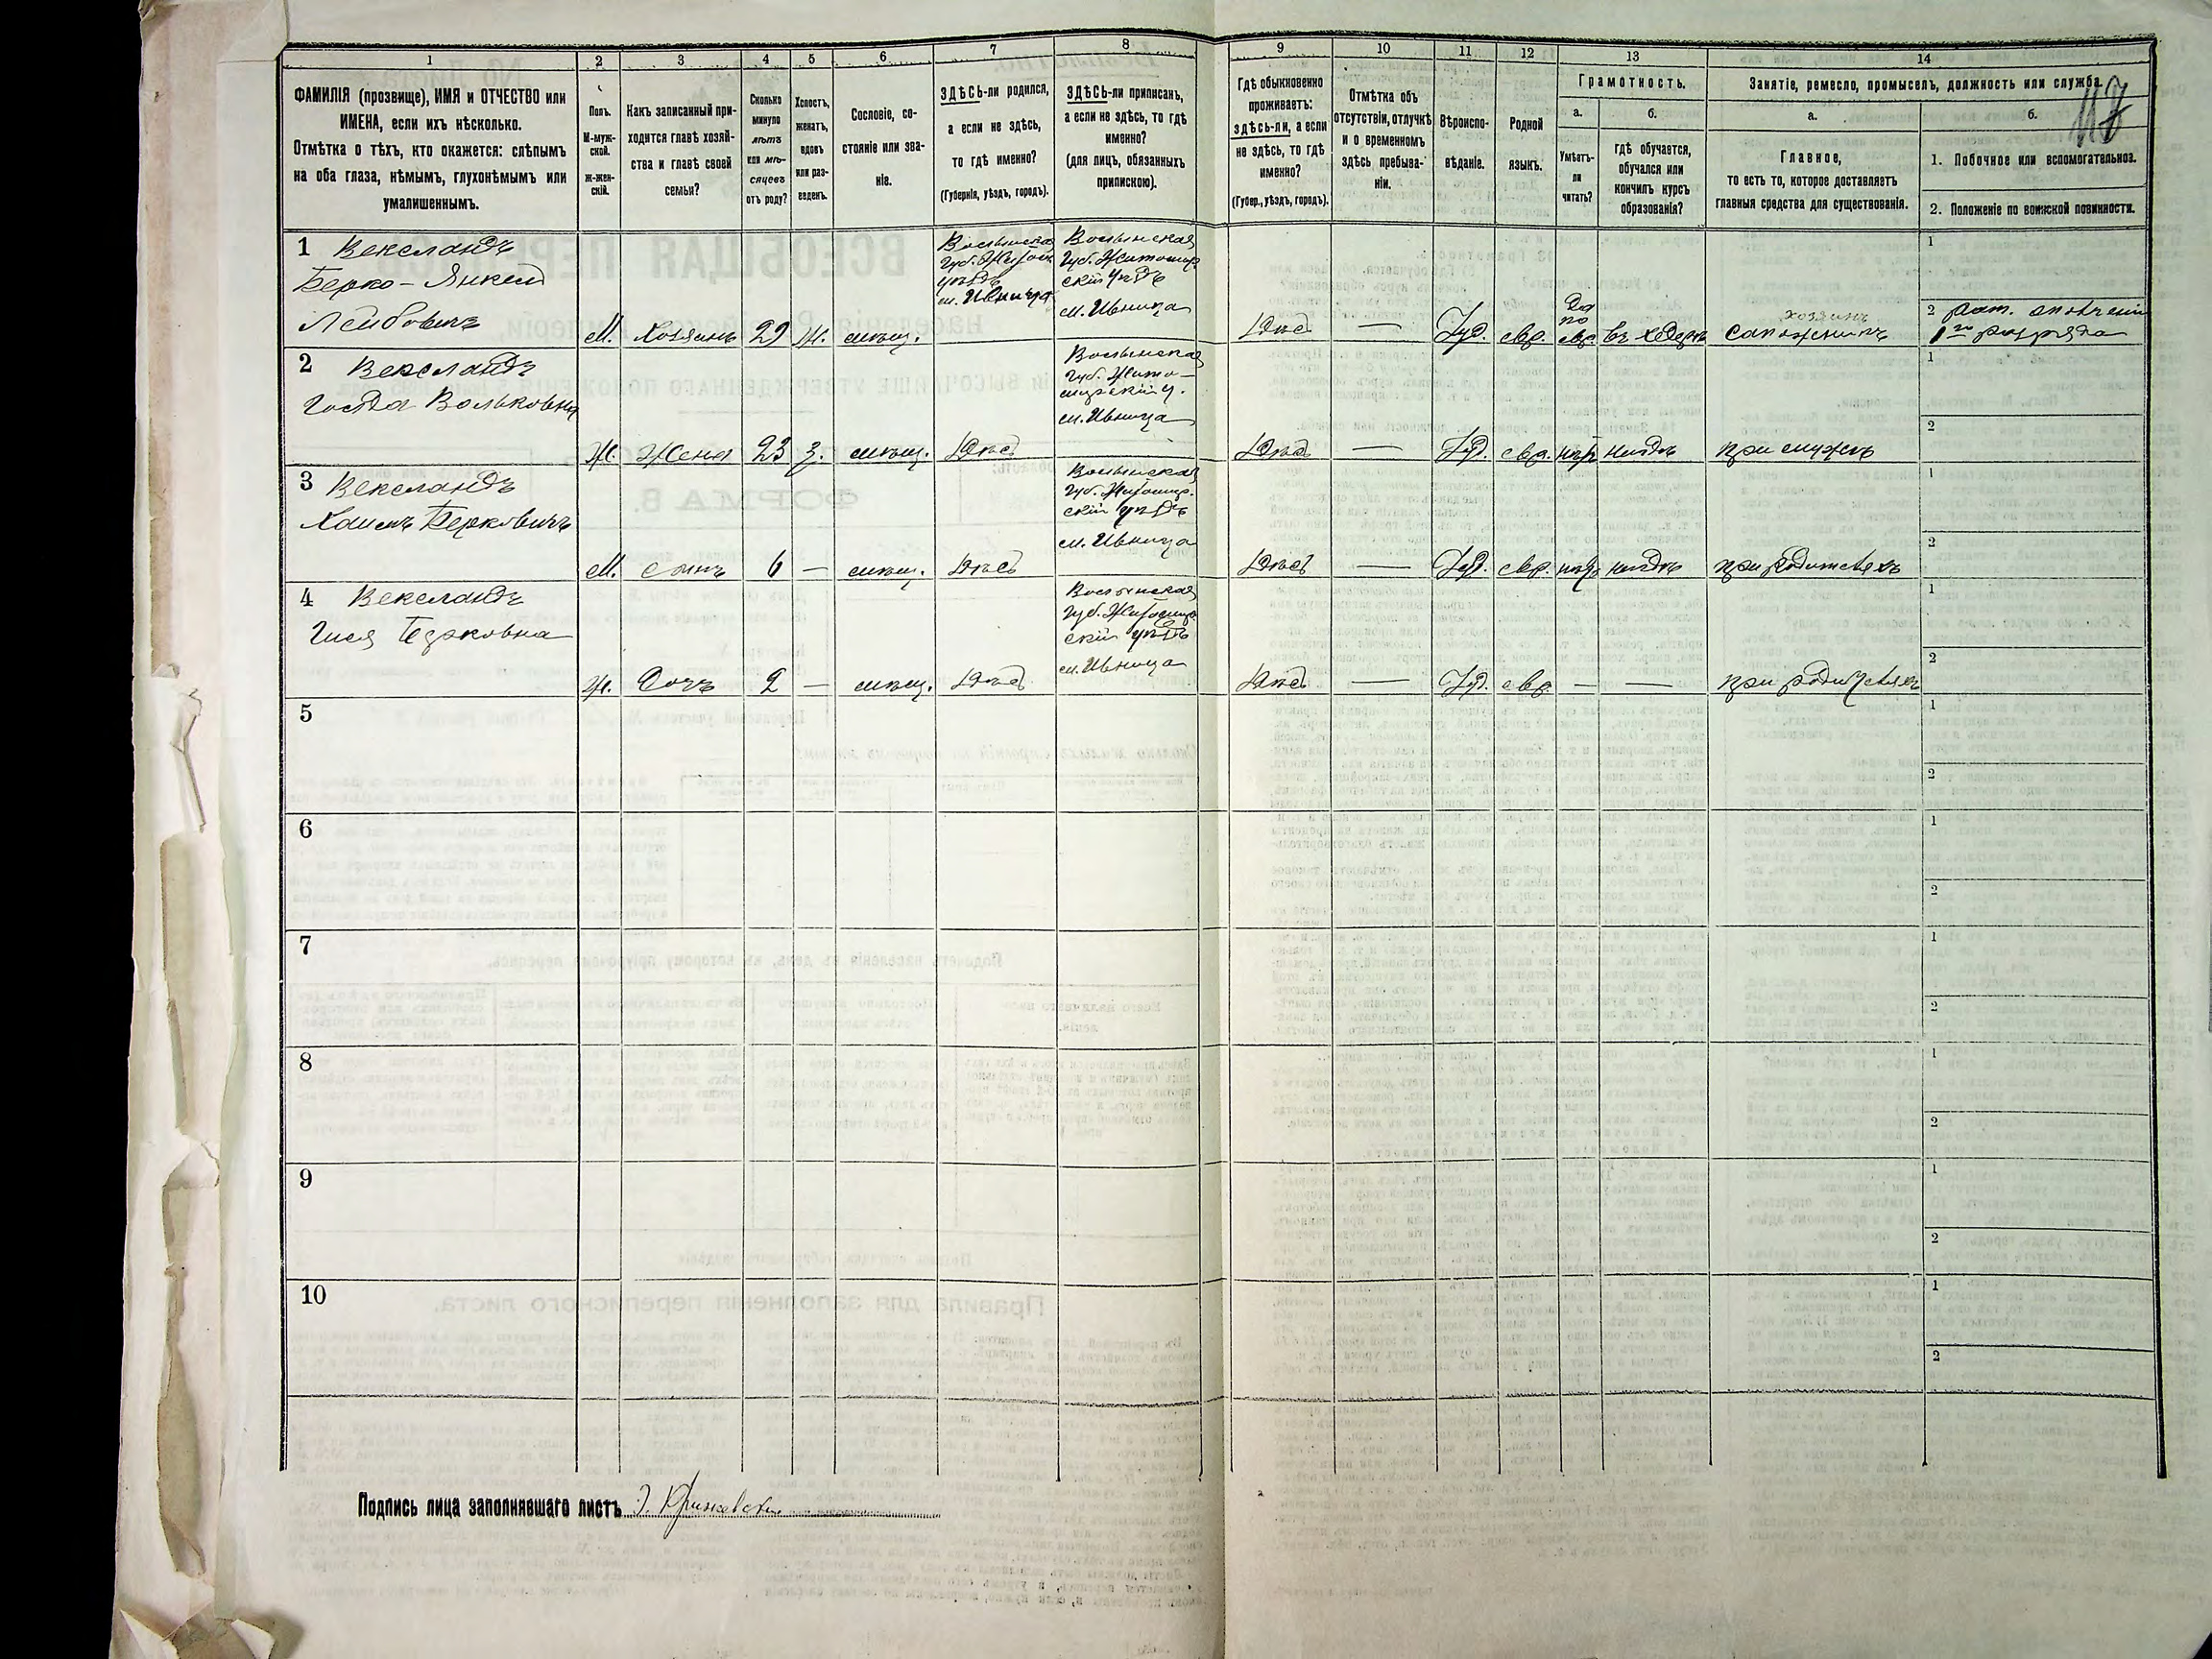 1 2 3 4 5 6 7 8 9 10 11 12 13 14
ФАМИЛІЯ (прозвище), ИМЯ и ОТЧЕСТВО или
ИМЕНА, если ихъ нѣсколько.
Отмѣтка о тѣхъ, кто окажется: слѣпымъ
на оба глаза, нѣмымъ, глухонѣмымъ или
умалишеннымъ.
Полъ.
М-муж-
ской.
ж-жен-
скій.
Какъ записанный при-
ходится главѣ хозяй-
ства и главѣ своей
семьи?
Сколько
минуло
лѣтъ
или мѣ-
сяцевъ
отъ роду?
Холостъ,
женатъ,
вдовъ
или раз-
веденъ.
Сословіе, со-
стояніе или зва-
ніе.
ЗДѢСЬ-ли родился,
а если не здѣсь,
то гдѣ именно?
(Губернія, уѣздъ, городъ).
ЗДѢСЬ-ли приписанъ,
а если не здѣсь, то гдѣ
именно?
(для лицъ, обязанныхъ
припискою).
Гдѣ обыкновенно
проживаетъ:
здѣсь-ли, а если
не здѣсь, то гдѣ
именно?
(Губер., уѣздъ, городъ).
Отмѣтка объ
отсутствіи, отлучкѣ
и о временномъ
здѣсь пребыва-
ніи.
Вѣроиспо-
вѣданіе.
Родной
языкъ.
Грамотность.
а.
Умѣетъ-
ли
читать?
б.
гдѣ обучается,
обучался или
кончилъ курсъ
образованія?
Занятіе, ремесло, промыселъ, должность или служба.
а.
Главное,
то есть то, которое доставляетъ
главныя средства для существованія.
б.
1. Побочное или вспомогательное.
2. Положеніе по воинской повинности.
1 Вексландъ
Берко-Янкель
Лейбовичъ
М. Хозяинъ 29 Ж. мѣщ.
Волынская
губ. Житом
уѣздъ
м. Ивница
Волынская
губ. Житомир
скій уѣздъ
м. Ивница
Здѣсь — Іуд. евр.
Да
по
евр. въ хедерѣ
хозяинъ
сапожникъ
1
2 рат. ополченія
1го разряда
2 Вексландъ
Вольковна
Ж. Жена 23 З. мѣщ. Здѣсь
Волынская
губ. Жито-
мирскій у.
м. Ивница
Здѣсь — Іуд. евр. нѣтъ нигдѣ при мужѣ
1
2
3 Вексландъ
Хаимъ Берковичъ
М. сынъ 6 — мѣщ. Здѣсь
Волынская
губ. Житомир.
скій уѣздъ
м. Ивница
Здѣсь — Іуд. евр. нѣтъ нигдѣ при родителяхъ
1
2
4 Вексландъ
Гися Берковна
Ж. Дочь 2 — мѣщ. Здѣсь
Волынская
губ. Житомир
скій уѣздъ
м. Ивница
Здѣсь — Іуд. евр. — — при родителяхъ
1
2
5
1
2
6
1
2
7
1
2
8
1
2
9
1
2
10
1
2
Подпись лица заполнявшаго листъ